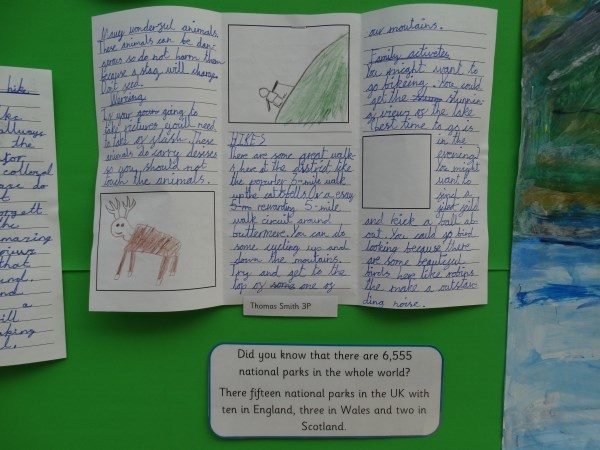 Many wonderful animals.
These animals can be dan-
gerous so do not harm them
because a stag will charge.
Warning
If your going to
take pictures you'll need
to take of flash. These
animals do carry desises
so you should not
touch the animals.
HIKES
There are some great walk-
s here in the district like
the popular 5-mile walk
up the catbells in a easy
rewarding 5-mile
walk circuit around
buttermere. You can do
some cycling up and
down the moutains.
Try and get to the
top of some one of
our moutains.
Family activetes
You might want to
go bikeing. You could
get the
views of the lake.
best time to go is
in the
evening
You might
want to
find a
field
and kick a ball ab-
out. You could go bird
looking because there
are some beautiful
birds here like robins
the make a outstan-
ding noise.
Thomas Smith 3P
hike
the
do
the
amazing
that
and
a
Did you know that there are 6,555
national parks in the whole world?
There fifteen national parks in the UK with
ten in England, three in Wales and two in
Scotland.